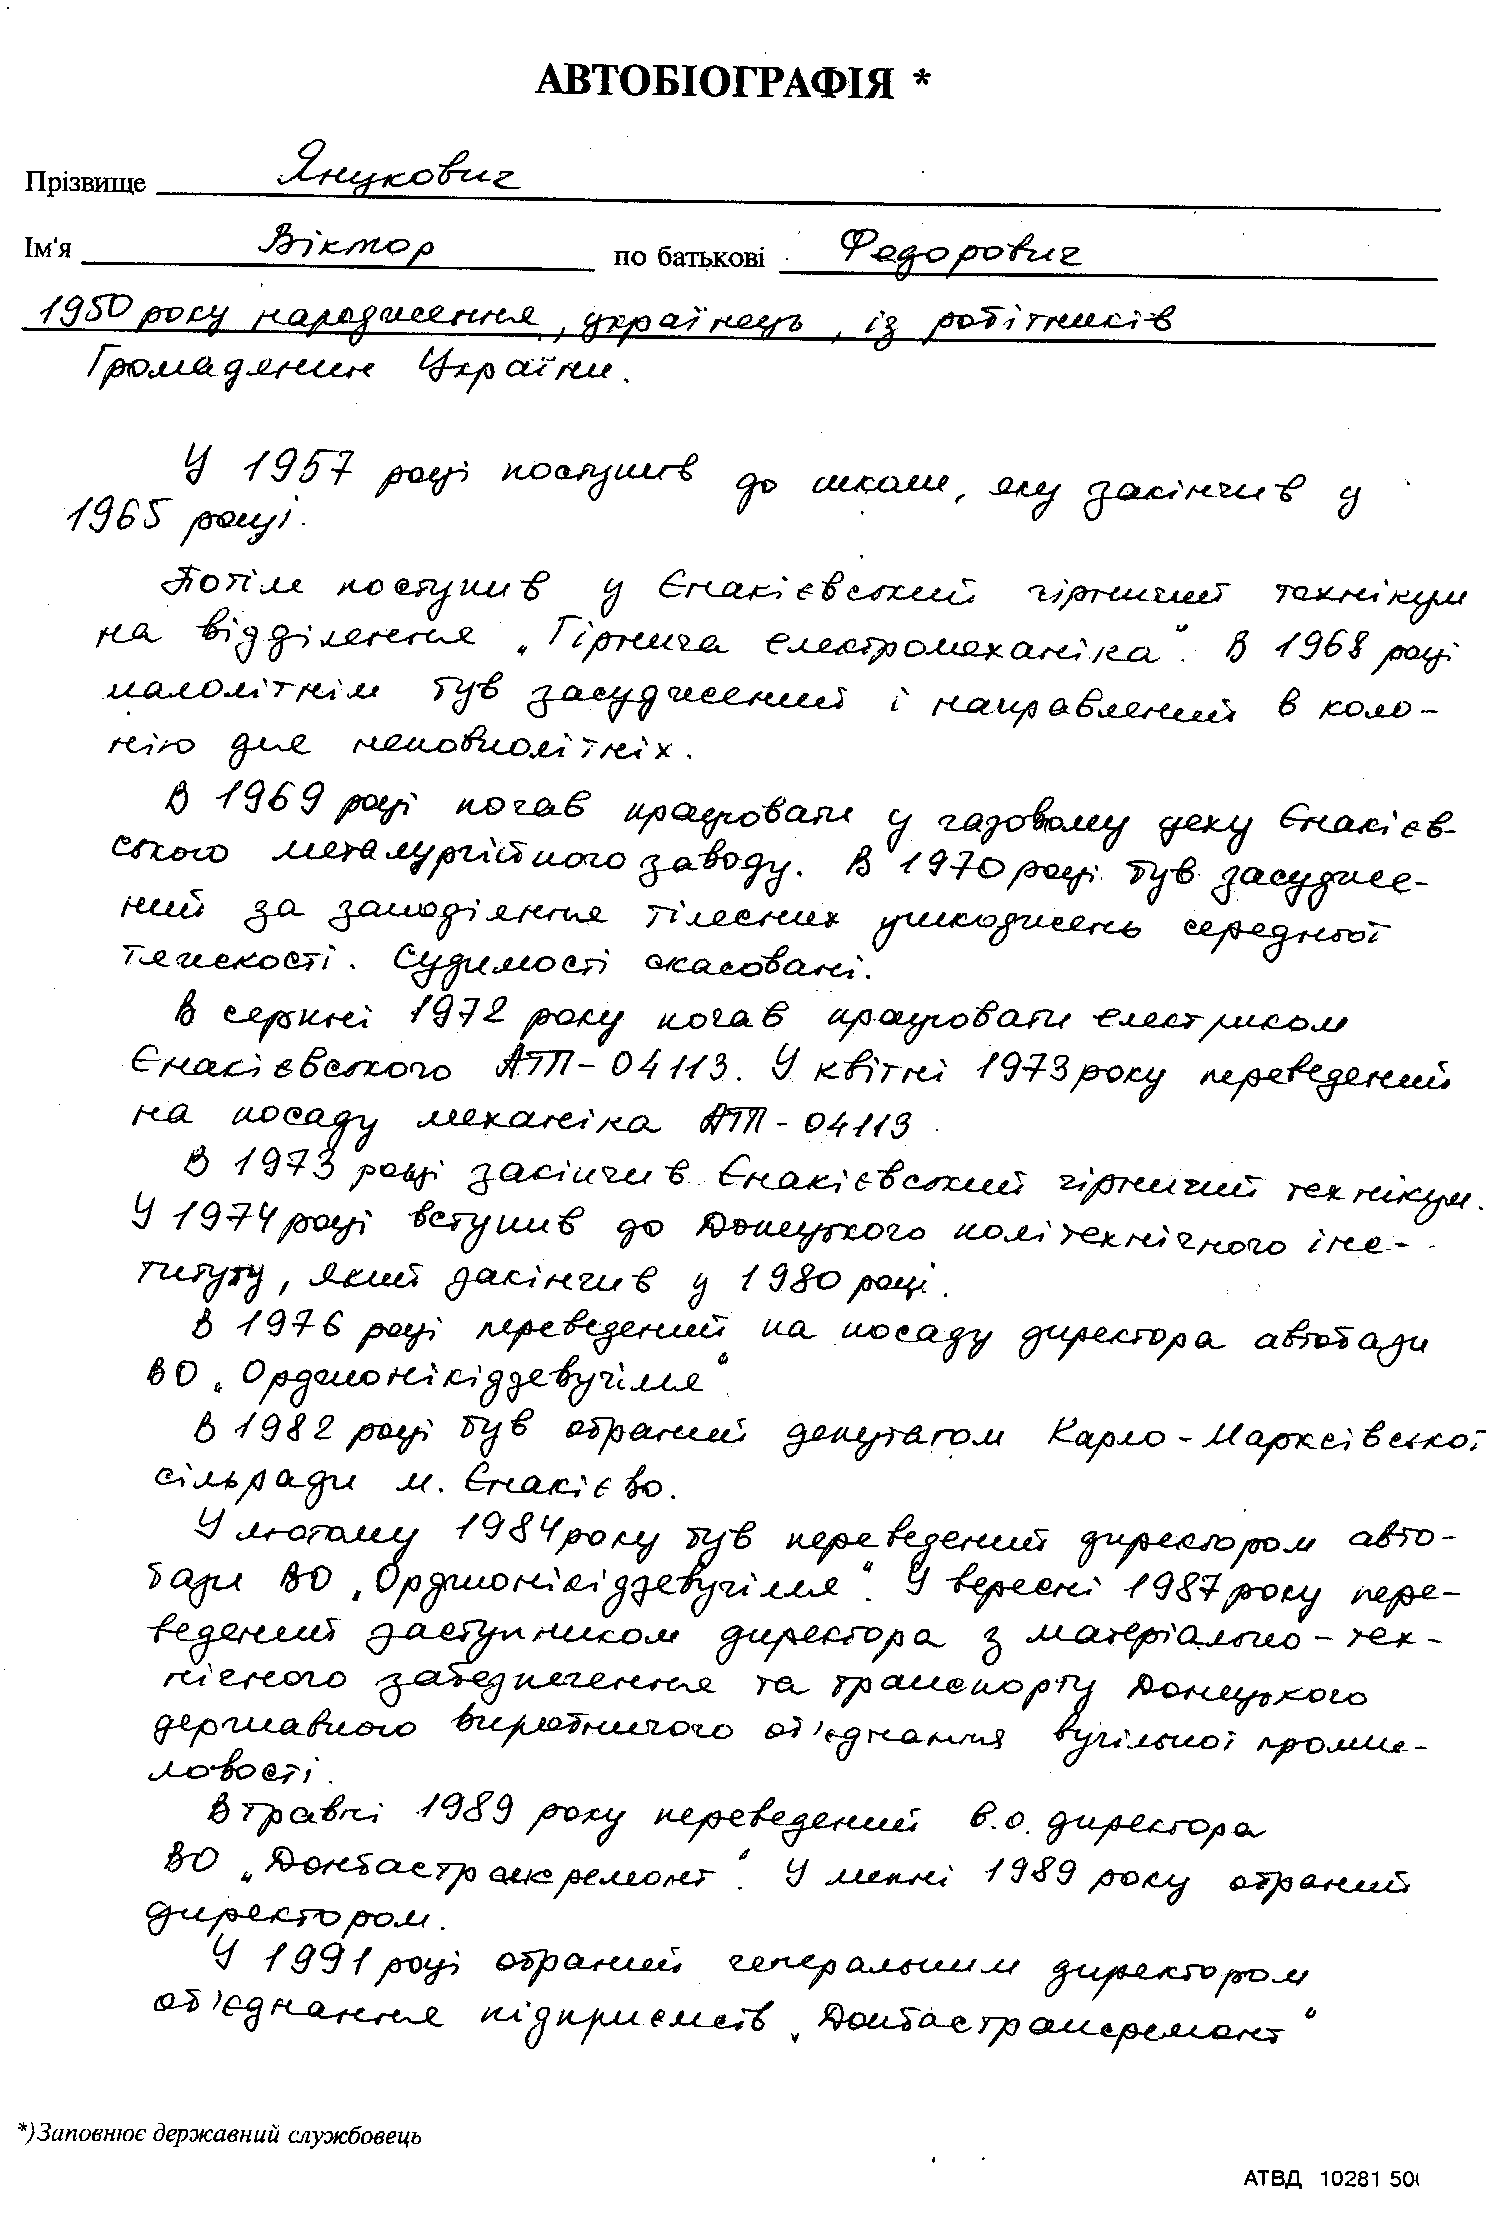 АВТОБІОГРАФІЯ *
Прізвище Янукович
Ім'я Віктор по батькові Федорович
1950 року народження, українець, із робітників
Громадянин України.
У 1957 році поступив до школи, яку закінчив у
1965 році.
Потім поступив у Єнакієвський гірничий технікум
на відділення „Гірнича електромеханіка". В 1968 році
малолітнім був засуджений і направлений в коло-
нію для неповнолітніх.
В 1969 році почав працювати у газовому цеху Єнакієв-
ського металургійного заводу. В 1970 році був засудже-
ний за заподіяння тілесних ушкоджень середньої
тяжкості. Судимості скасовані.
В серпні 1972 року почав працювати електриком
Єнакієвського АТП-04113. У квітні 1973 року переведений
на посаду механіка АТП-04113
В 1973 році закінчив Єнакієвський гірничий технікум.
У 1974 році вступив до Донецького політехнічного інс-
титуту, який закінчив у 1980 році.
В 1976 році переведений на посаду директора автобази
ВО „Орджонікідзевугілля"
В 1982 році був обраний депутатом Карло-Марксівської
сільради м. Єнакієво.
У лютому 1984 року був переведений директором авто-
бази ВО „Орджонікідзевугілля". У вересні 1987 року пере-
ведений заступником директора з матеріально-тех-
нічного забезпечення та транспорту Донецького
державного виробничого об'єднання вугільної промис-
ловості.
В травні 1989 року переведений в.о. директора
ВО „Донбастрансремонт". У липні 1989 року обраний
директором.
У 1991 році обраний генеральним директором
об'єднання підприємств „Донбастрансремонт"
*) Заповнює державний службовець
АТВД 10281 500